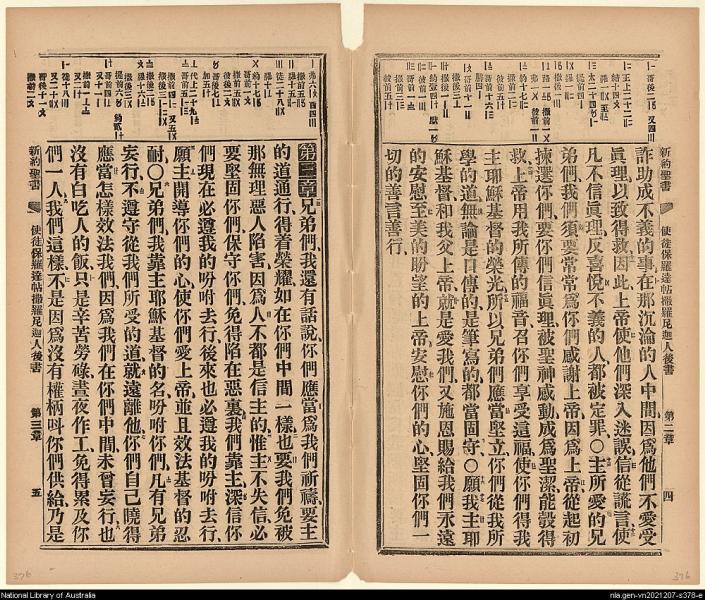 詐助成不義的事在那沉淪的人中間因爲他們不愛受
眞理以致得救因此上帝使他們深入迷誤信從謊言使
凡不信眞理反喜悅不義的人都被定罪○主所愛的兄
弟們我們須要常常爲你們感謝上帝因爲上帝從起初
揀選你們要你們信眞理被聖神感動成爲聖潔能彀得
救上帝用我所傳的福音召你們享受這福使你們得我
主耶穌基督的榮光所以兄弟們應當堅立你們從我所
學的道無論是口傳的是筆寫的都當固守○願我主耶
穌基督和我父上帝就是愛我們又施恩賜給我們永遠
的安慰至美的盼望的上帝安慰你們的心堅固你們一
切的善言善行
新約聖書 使徒保羅達帖撒羅尼迦人後書 第二章 四
第三章兄弟們我還有話說你們應當爲我們祈禱要主
的道通行得着榮耀如在你們中間一樣也要我們免被
那無理惡人陷害因爲人不都是信主的惟主不失信必
要堅固你們保守你們免得陷在惡裏我們靠主深信你
們現在必遵我的吩咐去行後來也必遵我的吩咐去行
願主開導你們的心使你們愛上帝並且效法基督的忍
耐○兄弟們我靠主耶穌基督的名吩咐你們凡有兄弟
妄行不遵守從我們所受的道就遠離他你們自己曉得
應當怎樣效法我們因爲我們在你們中間未曾妄行也
沒有白吃人的飯只是辛苦勞碌晝夜作工免得累及你
們一人我們這樣不是因爲沒有權柄叫你們供給乃是
新約聖書 使徒保羅達帖撒羅尼迦人後書 第三章 五
376
376
National Library of Australia
nla.gen-vn2021207-s378-e